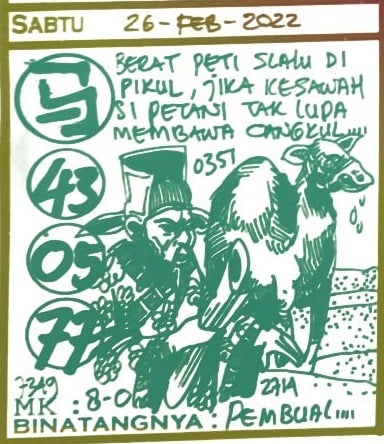 SABTU 26-FEB-2022
BERAT PETI SLALU DI
PIKUL, JIKA KESAWAH
SI PETANI TAK LUPA
MEMBAWA CANGKUL....
0351
43
05
77
7349
2714
MK : 8-0
BINATANGNYA : PEMBUAL....